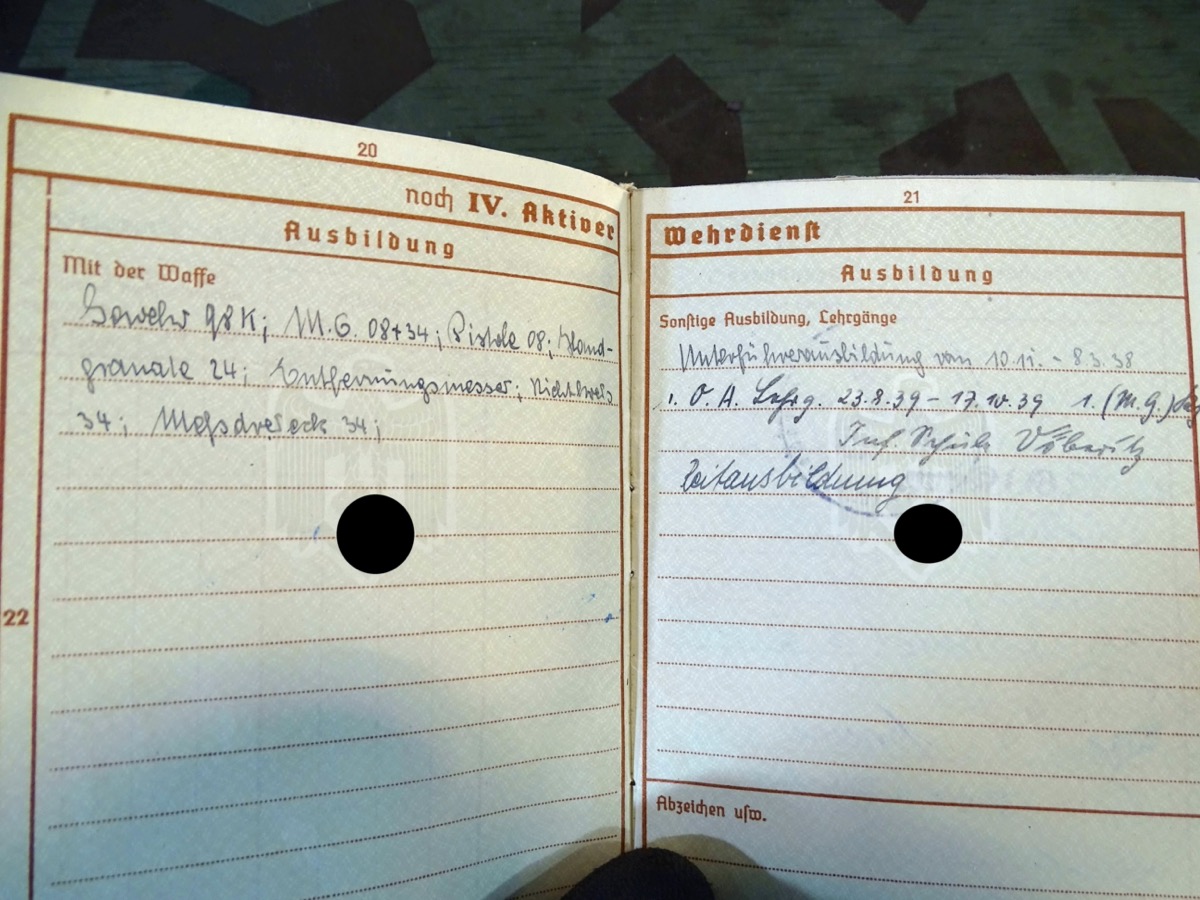 20
noch IV. Aktiver
Ausbildung
Mit der Waffe
Gewehr 98K; M.G. 08+34; Pistole 08; Hand-
granate 24; Entfernungsmesser; Richtkreis
34; Meßdreieck 34;
22
21
Wehrdienst
Ausbildung
Sonstige Ausbildung, Lehrgänge
Unterführerausbildung vom 10.11. - 8.3.38
1. O. A. Lehrg. 23.8.39 - 17.10.39 1. (M.G.)
Inf. Schule Döberitz
Reitausbildung
Abzeichen usw.